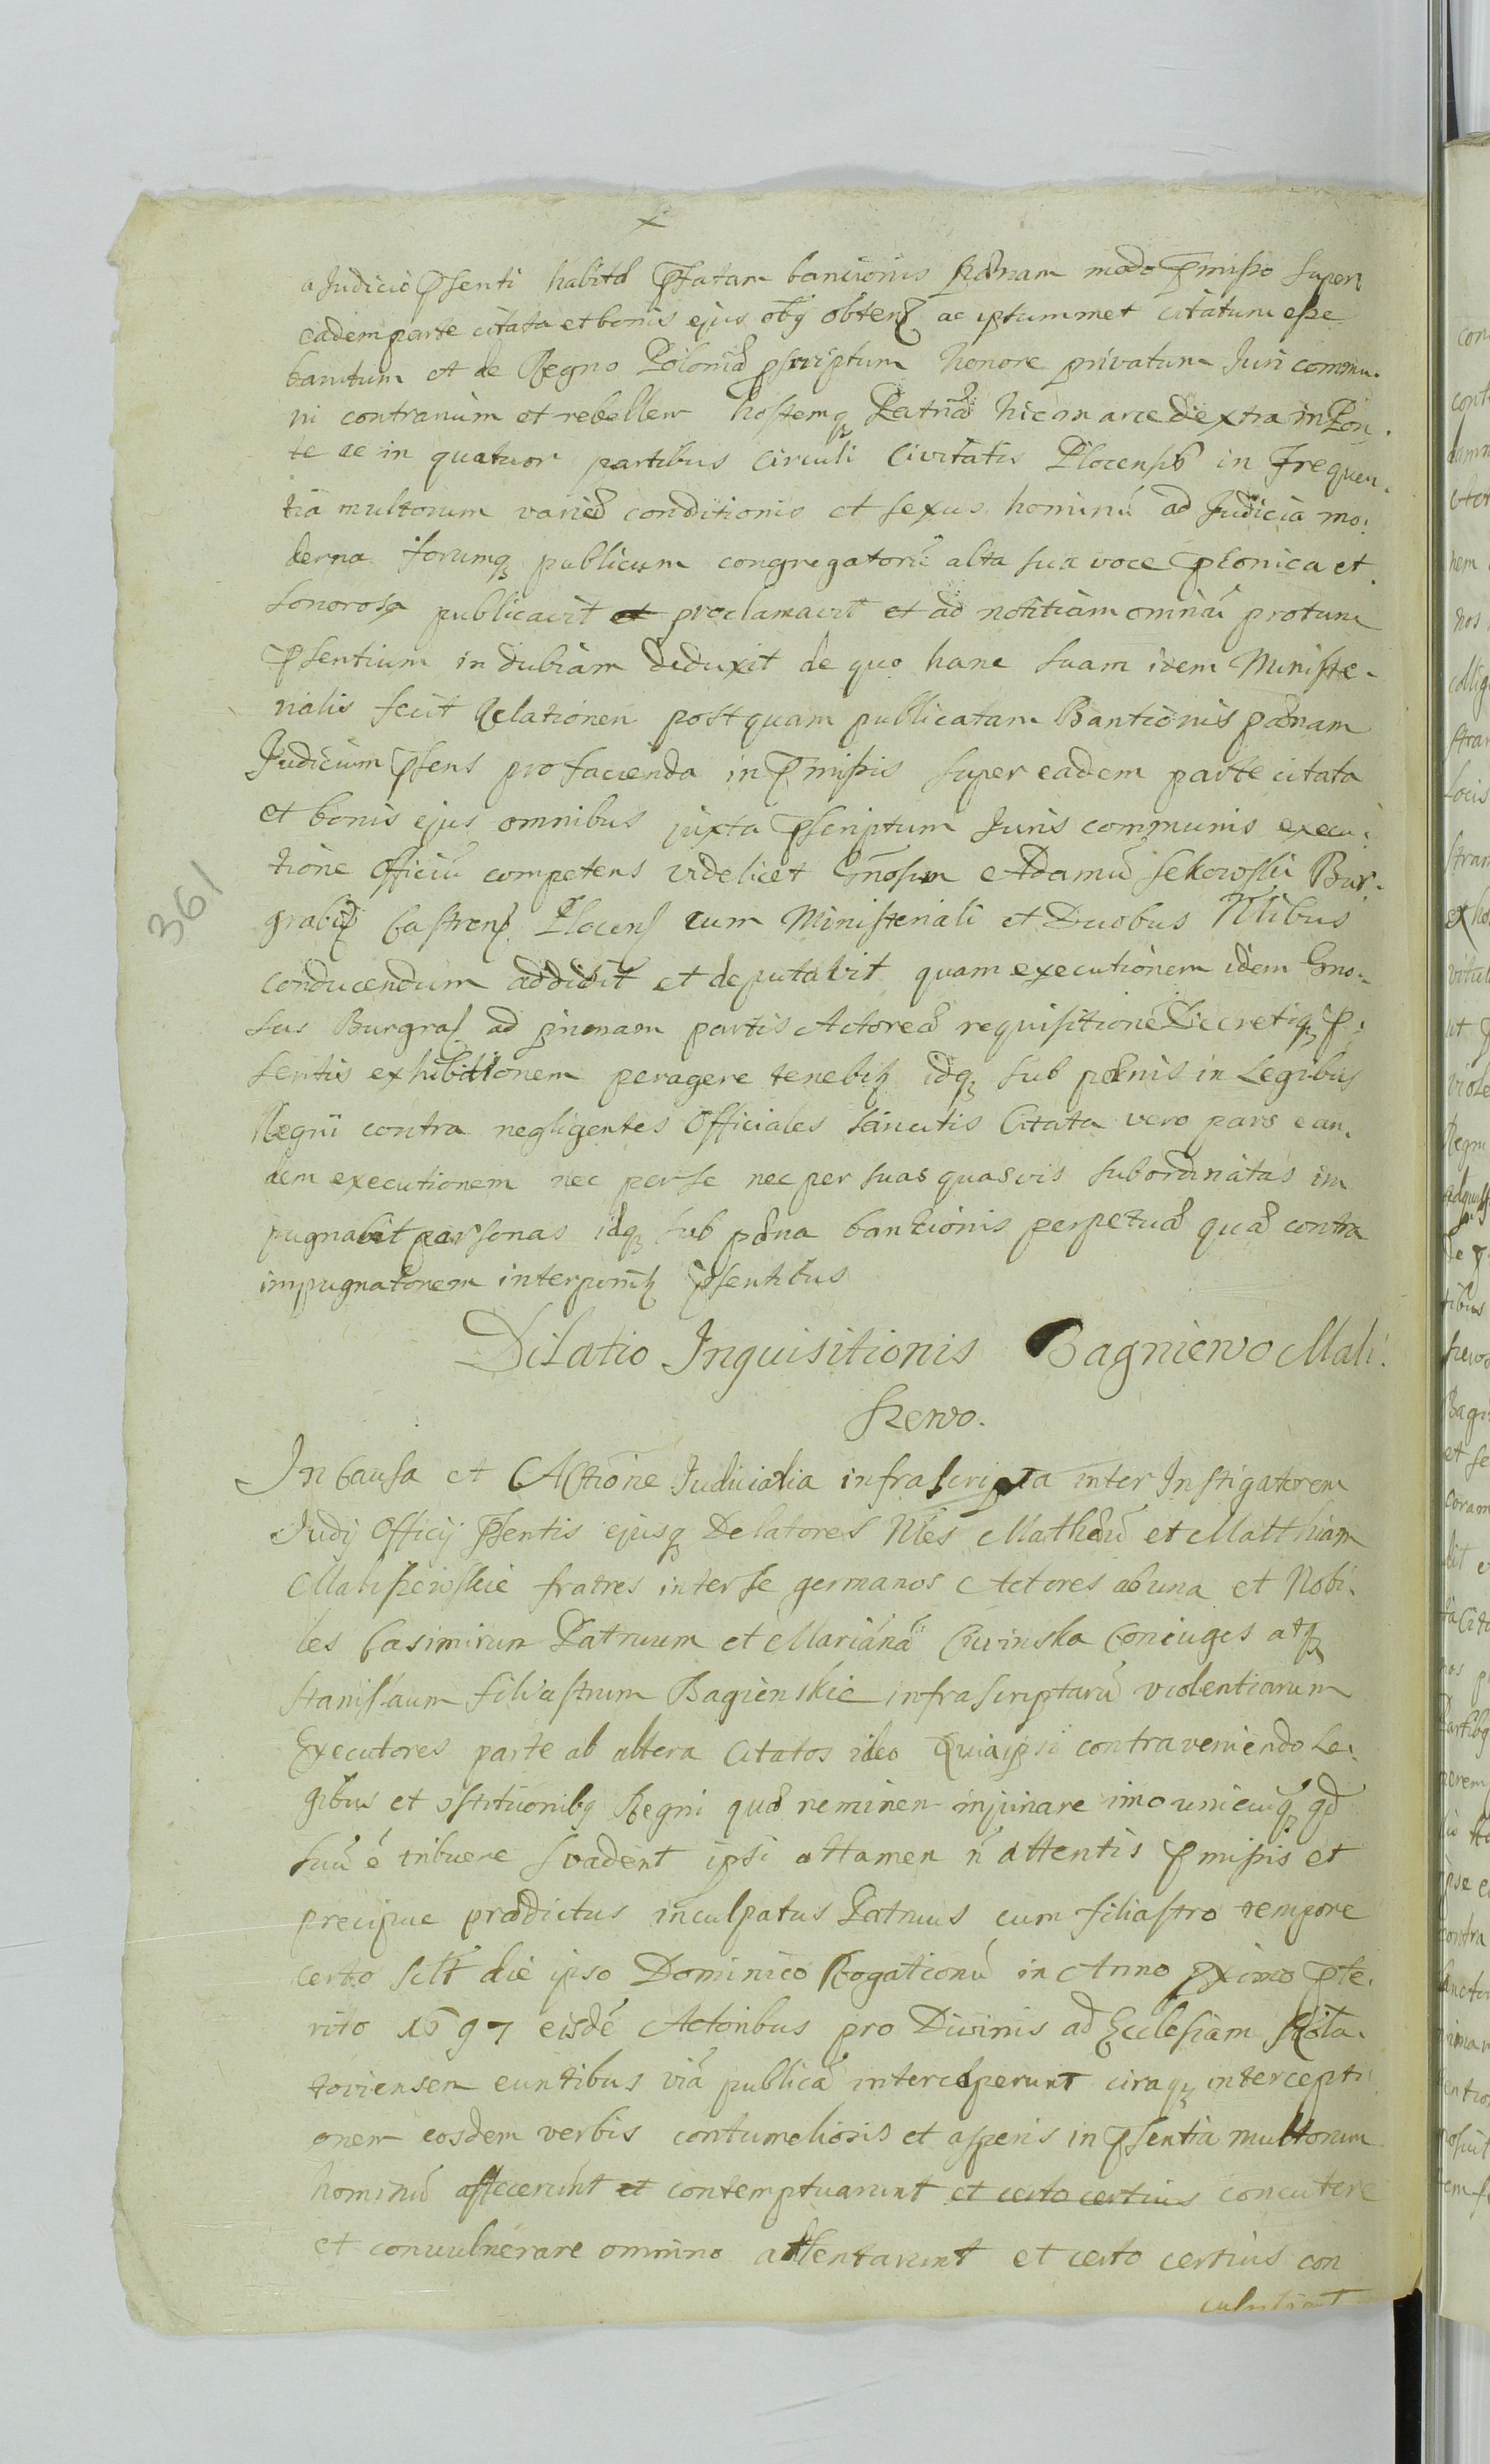 a Judicio Psenti habita Pfatam banionis pænam modo Pmisso super
eadem parte citata et bonis ejus obq obtenq ac ipsummet citatum esse
banitum et de Regno Poloniæ pscriptum honore privatum Juri commu.
ni contrarium et rebellem hostemq Patriæ hic in arce dextra in Pon.
te ac in quatuor partibus circuli Civitatis Plocensis in Frequen.
tia multorum variæ conditionis et sexus hominū ad Judicia mo.
derna forumq publicum congregatorū alta sua voce Ptonica et
sonorosa publicavit et proclamavit et ad notitiam omniū protunc
Psentium indubiam deduxit de quo hanc suam idem Ministe-
rialis fecit Relationem post quam publicatam Bantionis pænam
Judicium Psens pro facienda in Pmissis super eadem parte citata
et bonis ejus omnibus juxta Pscriptum Juris communis execu.
tione Officiū competens videlicet Gnosum Adamū Sekowski Bur.
grabiū Castrens Plocens cum Ministeriali et Duobus Nlibus
conducendum addidit et deputavit quam executionem idem Gno.
sus Burgraf ad primam partis Actoreæ requisitionē Decretiq P.
sentis exhibitionem peragere tenebitz idq sub pænis in Legibus
Regni contra negligentes Officiales sancitis Citata vero pars ean.
dem executionem nec per se nec per suas quasvis subordinatas im
pugnabit personas idq sub pæna bannionis perpetuæ quæ contra
impugnatorem interponitz Psentibus
Dilatio Inquisitionis Bagniewo Mali.
szewo.
In Causa et Actione Judicialia infrascripta inter Instigatorem
Judij Officij Psentis ejusq Delatores Nles Mathæū et Matthiam
Maliszewskie fratres inter se germanos Actores ab una et Nobi.
les Casimirum Patruum et Mariānā Coniuges atq
Stanislaum filiastrum Bagienskie infrascriptarū violentiarum
Executores parte ab altera Citatos ideo Quia ipsi contraveniendo Le.
gibus et ɔstitutionibq Regni quæ neminem injuriare imo unicuiq qd
suū é tribuere svadent ipsi attamen ñ attentis Pmissis et
precipue prædictus inculpatus Patruus cum filiastro tempore
certo scilt die ipso Dominico Rogationū in Anno pximo Pte.
rito 1697 eisdē Actoribus pro Divinis ad Ecclesiam
toviensem euntibus viā publicā interceperunt circaq intercepti
onem eosdem verbis contumeliosis et asperis in Psentia multorum
hominū affecerunt et contemptuarunt et certo certius concutere
et convulnerare omnino attentarunt et certo certius con
361